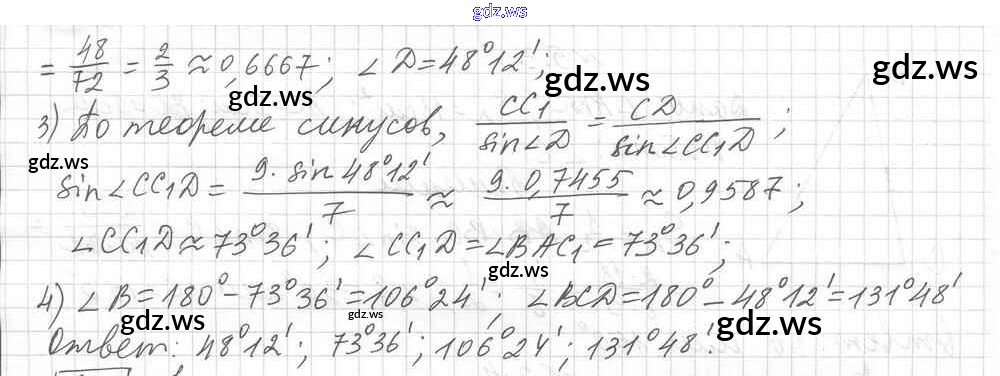 gdz.ws
= 48/72 = 2/3 ≈ 0,6667; ∠D = 48°12';
gdz.ws
gdz.ws
gdz.ws
3) По теореме синусов, CC1/sin∠D = CD/sin∠CC1D;
gdz.ws
sin∠CC1D = 9·sin48°12'/7 ≈ 9·0,7455/7 ≈ 0,9587;
gdz.ws
∠CC1D ≈ 73°36'; ∠CC1D = ∠BAC1 = 73°36';
gdz.ws
4) ∠B = 180° - 73°36' = 106°24'; ∠BCD = 180° - 48°12' = 131°48'
gdz.ws
gdz.ws
gdz.ws
Ответ: 48°12'; 73°36'; 106°24'; 131°48'.